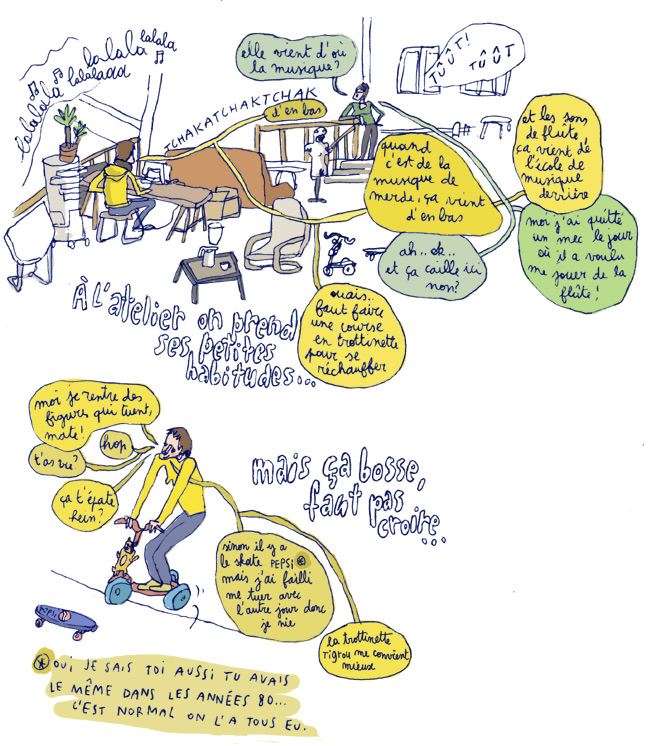 lalalala
lalalaaa
lalala
lalala
TCHAKATCHAKTCHAK
elle vient d'où
la musique?
TÛÛT!
TÛÛT
d'en bas
quand
c'est de la
musique de
merde, ça vient
d'en bas
et les sons
de flûte,
ça vient de
l'école de
musique
derrière
moi j'ai quitté
un mec le jour
où il a voulu
me jouer de la
flûte!
ah.. ok..
et ça caille ici
non?
ouais..
faut faire
une course
en trottinette
pour se
réchauffer
À L'atelier on prend
ses petites
habitudes...
moi je rentre des
figures qui tuent,
mate!
hop
t'as vu?
ça t'épate
hein?
mais ça bosse,
faut pas
croire...
sinon il y a
le skate PEPSI*
mais j'ai failli
me tuer avec
l'autre jour donc
je nie
la trottinette
Tigrou me convient
mieux
PEPSI
* OUI JE SAIS TOI AUSSI TU AVAIS
LE MÊME DANS LES ANNÉES 80...
C'EST NORMAL ON L'A TOUS EU.